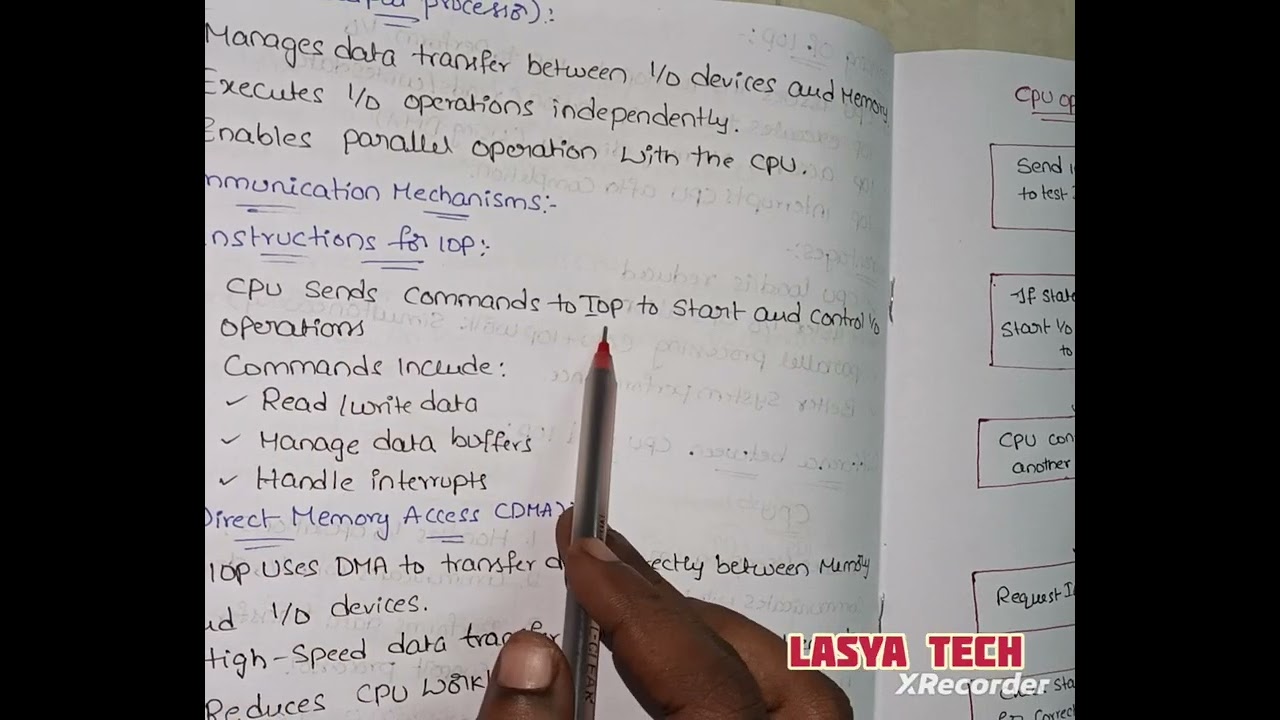 processor):
Manages data transfer between I/O devices and Memory
Executes I/O operations independently.
Enables parallel operation with the CPU.
mmunication Mechanisms:-
Instructions for IOP:
CPU Sends Commands to IOP to Start and Control I/O
operations
Commands Include:
✓ Read/write data
✓ Manage data buffers
✓ Handle interrupts
Direct Memory Access (DMA):
IOP Uses DMA to transfer d ectly between Memory
ud I/O devices.
High-Speed data transfer
Reduces CPU workl
CPU op
Send
to test
If stat
Start I/O
to
CPU con
another
Request I
LASYA TECH
XRecorder